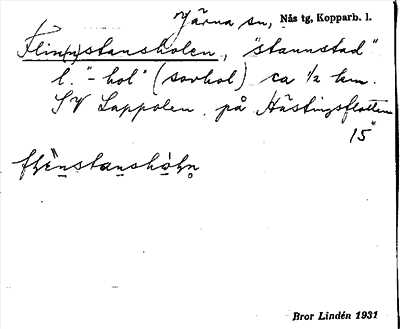 Järna sn, Nås tg, Kopparb. l.
Flin(n)stansholen, "stannstad"
l. "-hol" (sovhol) ca ½ km.
SV Lappolen på Hästingsflotten
15"
Bror Lindén 1931